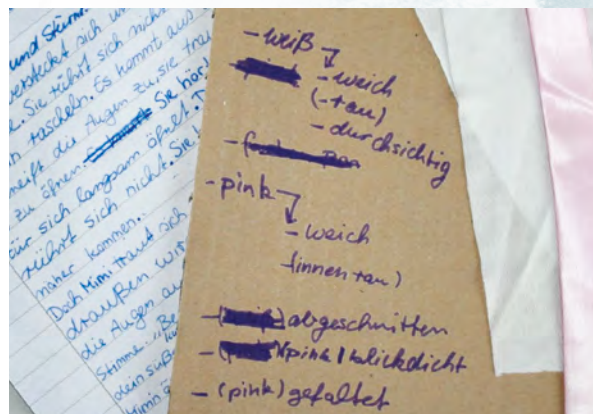 und Sturm.
versteckt sich
Sie rührt sich nicht
rascheln. Es kommt aus
die Augen zu, sie trau
zu öffnen. Sie hör
für sich langsam öffnet. D
rührt sich nicht. Sie
näher kommen..
Doch Mimi traut sich
draußen
die Augen au
Stimme: „Be
dein süß
- weiß
- weich
(- rau)
- durchsichtig
- pink
- weich
(innen rau)
- abgeschnitten
- (pink) blickdicht
- (pink) gefaltet